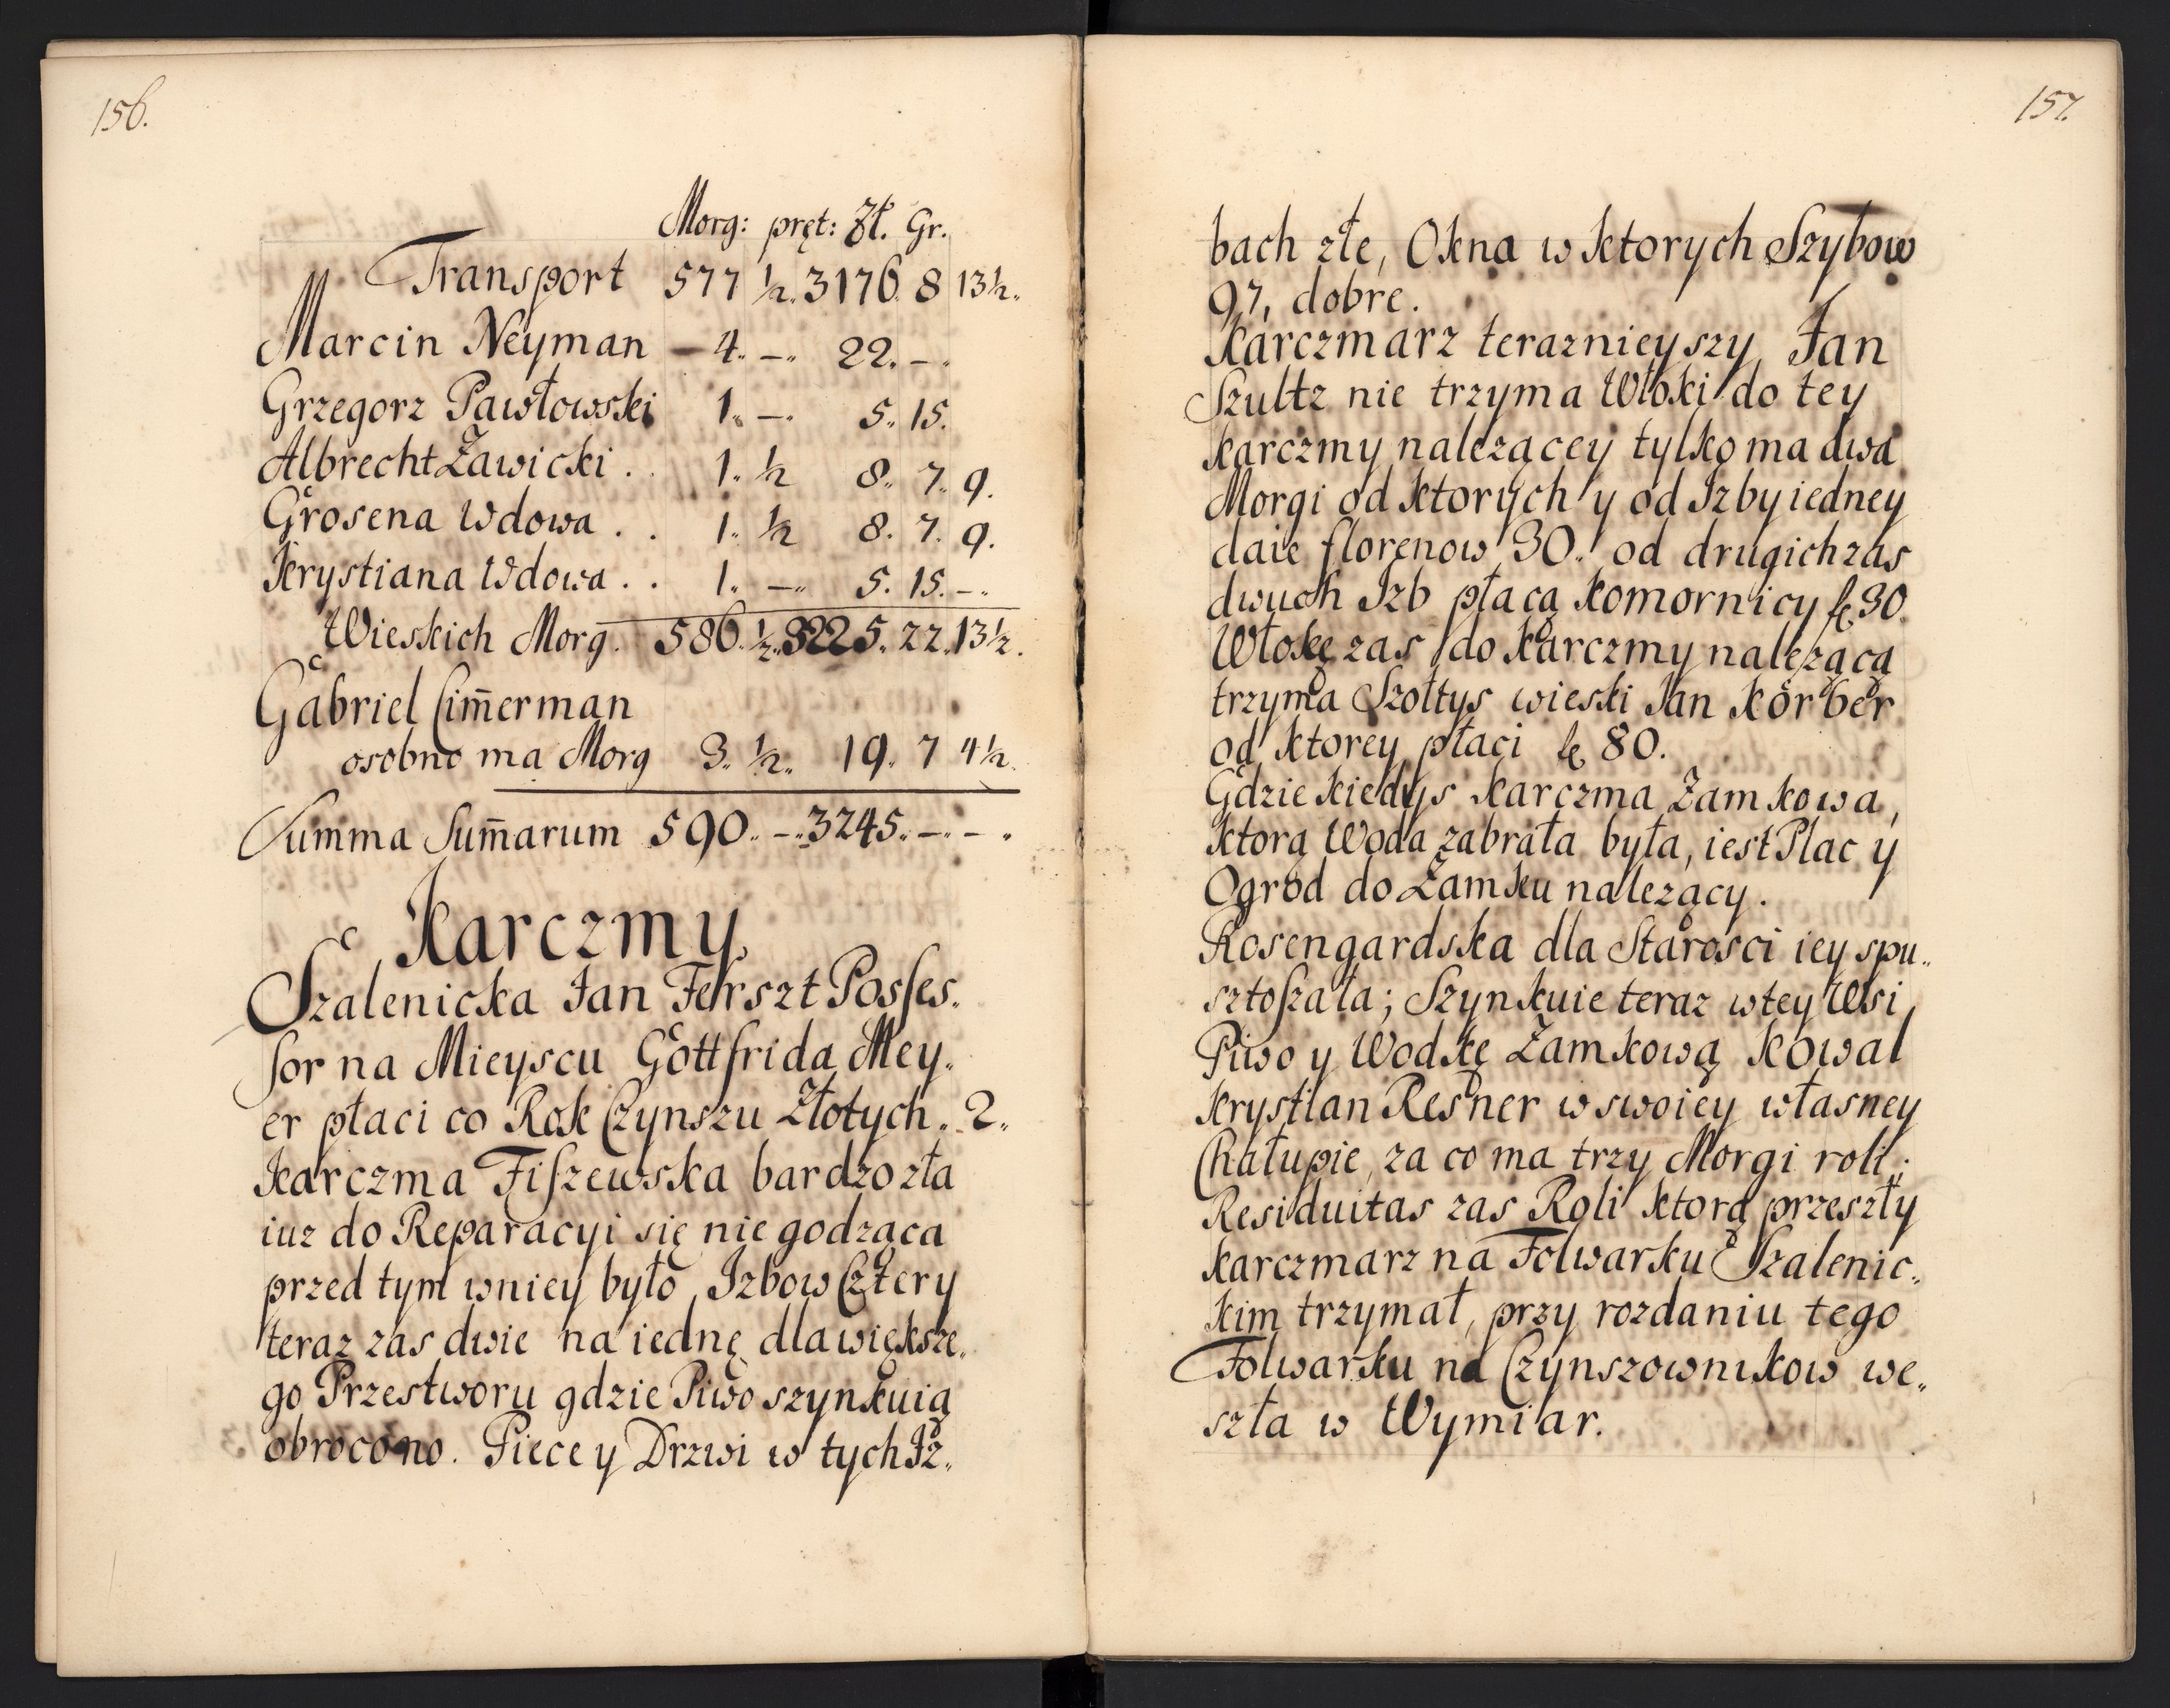 156.
Morg: pręt: Zł. Gr.
Transport 577 ½. 3176. 8 13½.
Marcin Neyman — 4. —. 22. —.
Grzegorz Pawłowski 1. —. 5. 15.
Albrecht Zawicki . . 1. ½ 8. 7. 9.
Grosena Wdowa . . 1. ½ 8. 7. 9.
Krystiana Wdowa . . 1. — 5. 15. —.
Wieskich Morg. 586. ½. 3225. 22. 13½.
Gabriel Cim̄erman
osobno ma Morg 3. ½. 19. 7 4½.
Summa Sum̄arum 590. —. 3245. —. —.
Karczmy
Szalenicka Jan Ferszt Posses.
sor na Mieyscu Gottfrida Mey.
er płaci co Rok Czynszu Złotych. 2.
Karczma Fiszewska bardzo zła
iuz do Reparacyi się nie godząca
przed tym w niey było Izbow Cztery
teraz zas dwie na iednę dla większe.
go Przestworu gdzie Piwo szynkuią
obrocono. Piece y Drzwi w tych Iz.
157.
bach złe, Okna w ktorych Szybow
97, dobre.
Karczmarz teraznieyszy Jan
Szultz nie trzyma Włoki do tey
karczmy nalezącey tylko ma dwa
Morgi od ktorych y od Izby iedney
daie florenow 30. od drugich zas
dwuch Izb płacą Komornicy fl. 30.
Włokę zas do Karczmy nalezącą
trzyma Szołtys wieski Jan Körber
od ktorey płaci fl. 80.
Gdzie kiedys karczma Zamkowa,
ktorą Woda zabrała była, iest Plac y
Ogrod do Zamku nalezący.
Rosengardska dla Starosci iey spu.
stoszała; Szynkuie teraz w tey Wsi
Piwo y Wodkę Zamkową Kowal
Krystian Resner w swoiey własney
Chałupie, za co ma trzy Morgi roli;
Residuitas zas Roli ktorą przeszły
karczmarz na Folwarku Szalenic.
kim trzymał, przy rozdaniu tego
Folwarku na Czynszownikow we.
szła w Wymiar.